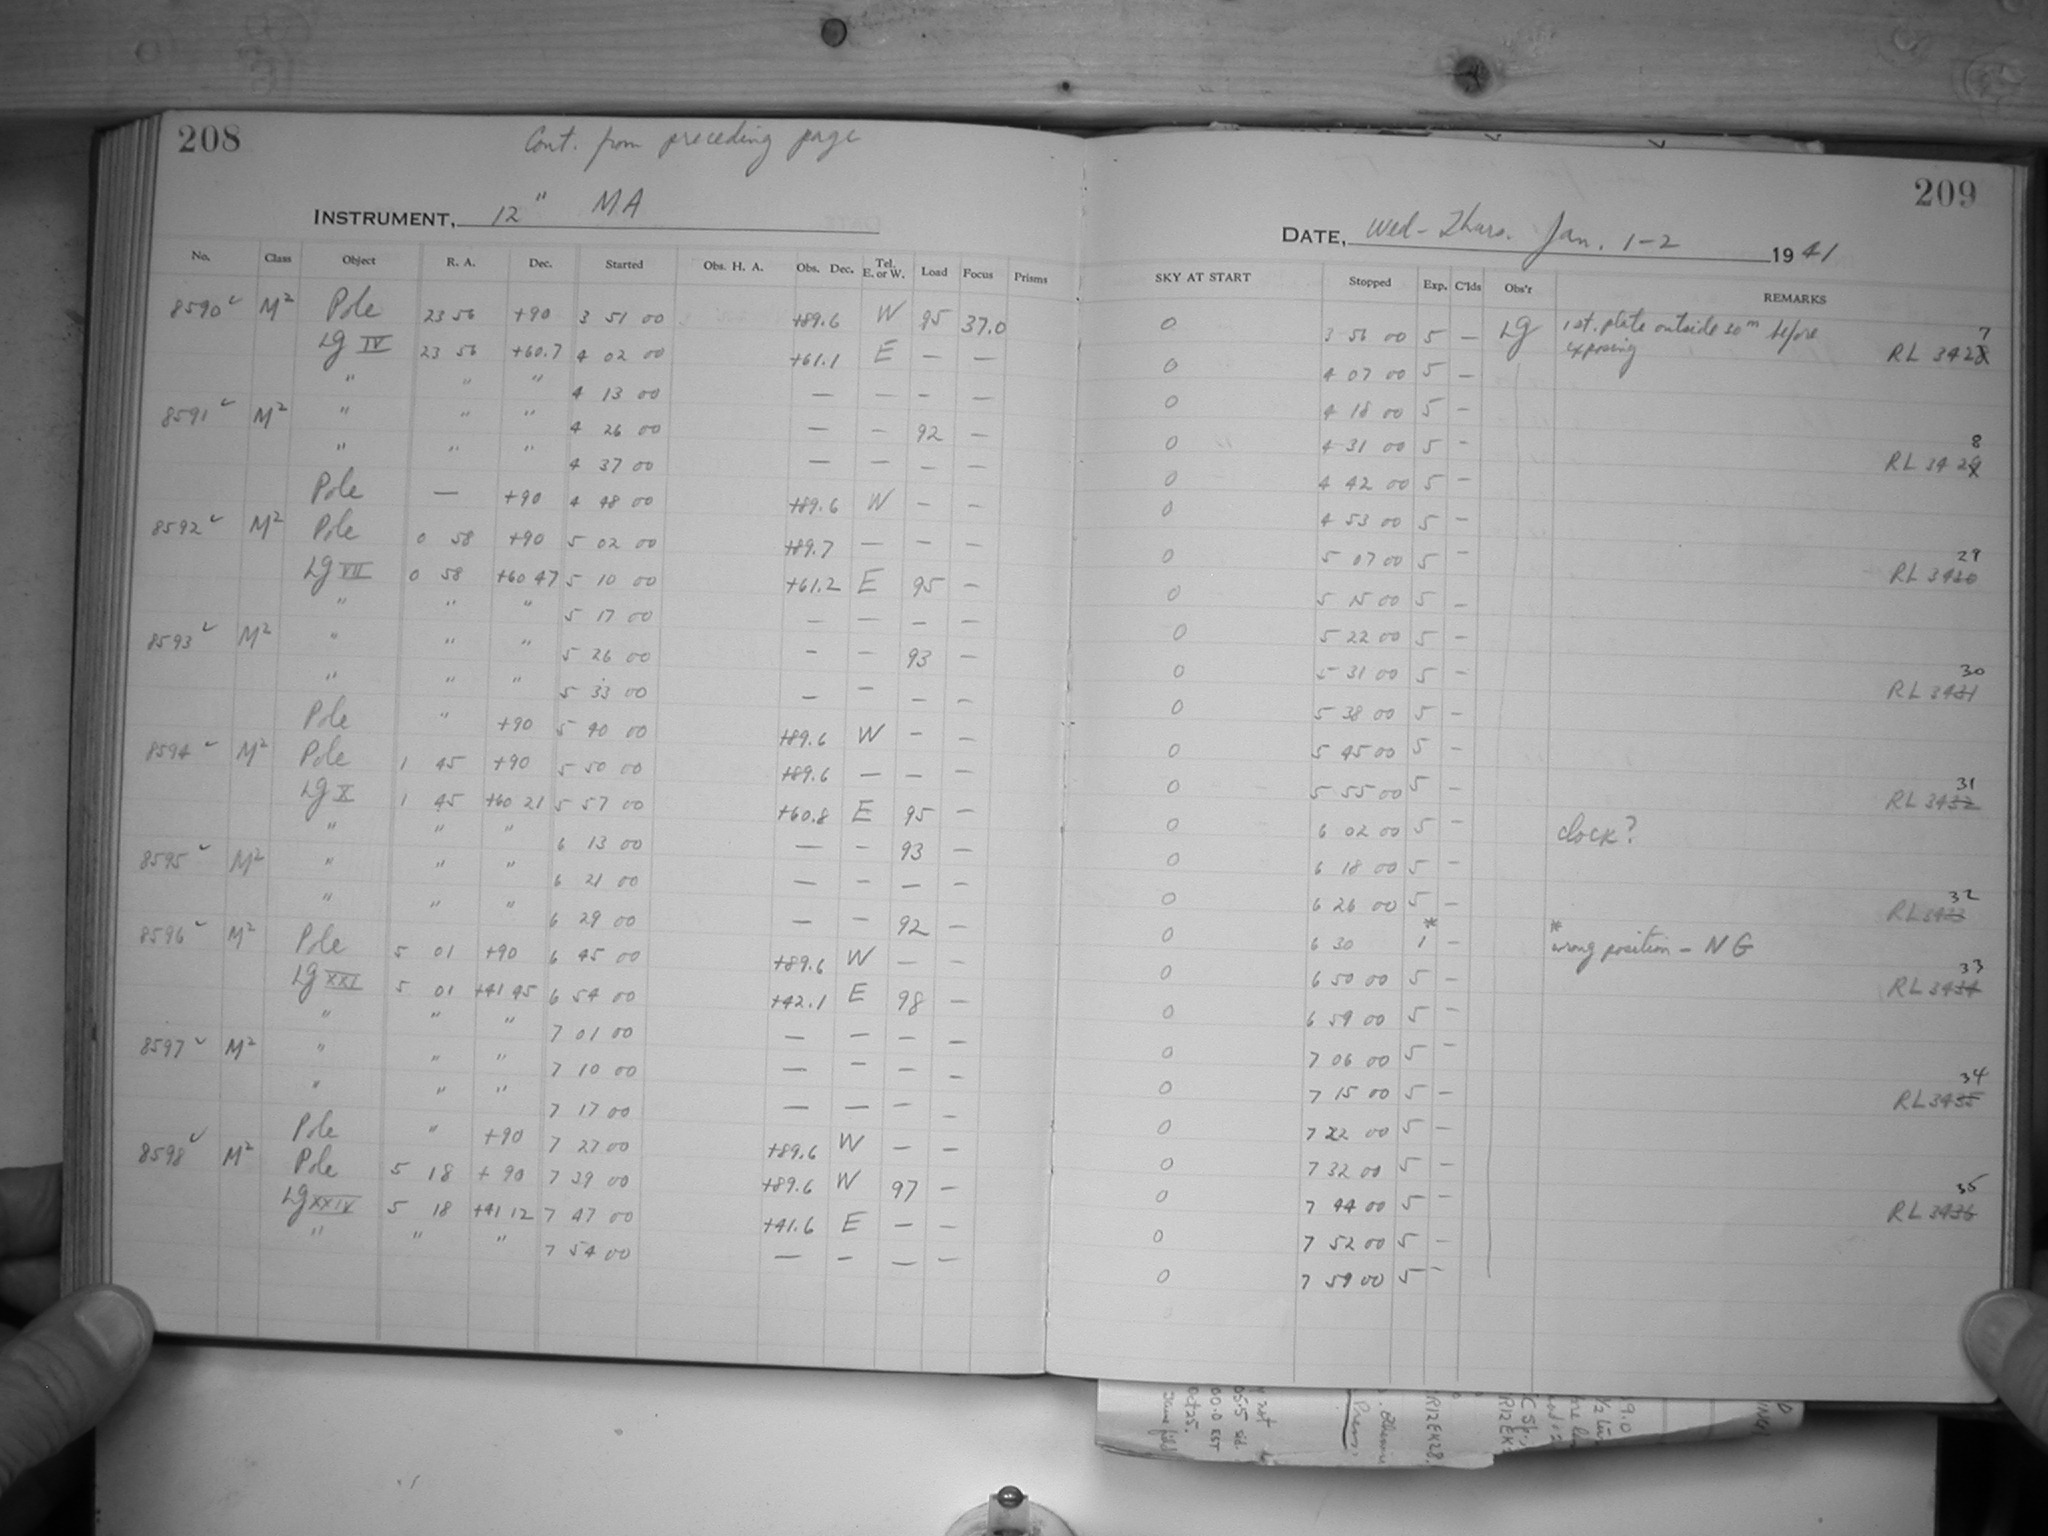 208
Cont. from preceding page
INSTRUMENT, 12" MA
No. Class Object R. A. Dec. Started Obs. H. A. Obs. Dec. Tel. E. or W. Load Focus Prisms
8590 ✓ M² Pole 23 56 +90 3 51 00 +89.6 W 95 37.0
Lg IV 23 56 +60.7 4 02 00 +61.1 E — —
" " " 4 13 00 — — — —
8591 ✓ M² " " " 4 26 00 — — 92 —
" " " 4 37 00 — — — —
Pole — +90 4 48 00 +89.6 W — —
8592 ✓ M² Pole 0 58 +90 5 02 00 +89.7 — — —
Lg VII 0 58 +60 47 5 10 00 +61.2 E 95 —
" " " 5 17 00 — — — —
8593 ✓ M² " " " 5 26 00 — — 93 —
" " " 5 33 00 — — — —
Pole " +90 5 40 00 +89.6 W — —
8594 ✓ M² Pole 1 45 +90 5 50 00 +89.6 — — —
Lg X 1 45 +60 21 5 57 00 +60.8 E 95 —
" " " 6 13 00 — — 93 —
8595 ✓ M² " " " 6 21 00 — — — —
" " " 6 29 00 — — 92 —
8596 ✓ M² Pole 5 01 +90 6 45 00 +89.6 W — —
Lg XXI 5 01 +41 45 6 54 00 +42.1 E 98 —
" " " 7 01 00 — — — —
8597 ✓ M² " " " 7 10 00 — — — —
" " " 7 17 00 — — — —
Pole " +90 7 27 00 +89.6 W — —
8598 ✓ M² Pole 5 18 +90 7 39 00 +89.6 W 97 —
Lg XXIV 5 18 +41 12 7 47 00 +41.6 E — —
" " " 7 54 00 — — — —
209
DATE, Wed – Thurs. Jan. 1–2 1941
SKY AT START Stopped Exp. C'lds Obs'r REMARKS
0 3 56 00 5 — Lg 1st. plate outside 30m before exposing RL 3428 7
0 4 07 00 5 —
0 4 18 00 5 —
0 4 31 00 5 — RL 3429 8
0 4 42 00 5 —
0 4 53 00 5 —
0 5 07 00 5 — RL 3430 29
0 5 15 00 5 —
0 5 22 00 5 —
0 5 31 00 5 — RL 3431 30
0 5 38 00 5 —
0 5 45 00 5 —
0 5 55 00 5 — RL 3432 31
0 6 02 00 5 — clock?
0 6 18 00 5 —
0 6 26 00 5 — RL 3433 32
0 6 30 1* — * wrong position – NG
0 6 50 00 5 — RL 3434 33
0 6 59 00 5 —
0 7 06 00 5 —
0 7 15 00 5 — RL 3435 34
0 7 22 00 5 —
0 7 32 00 5 —
0 7 44 00 5 — RL 3436 35
0 7 52 00 5 —
0 7 59 00 5 —